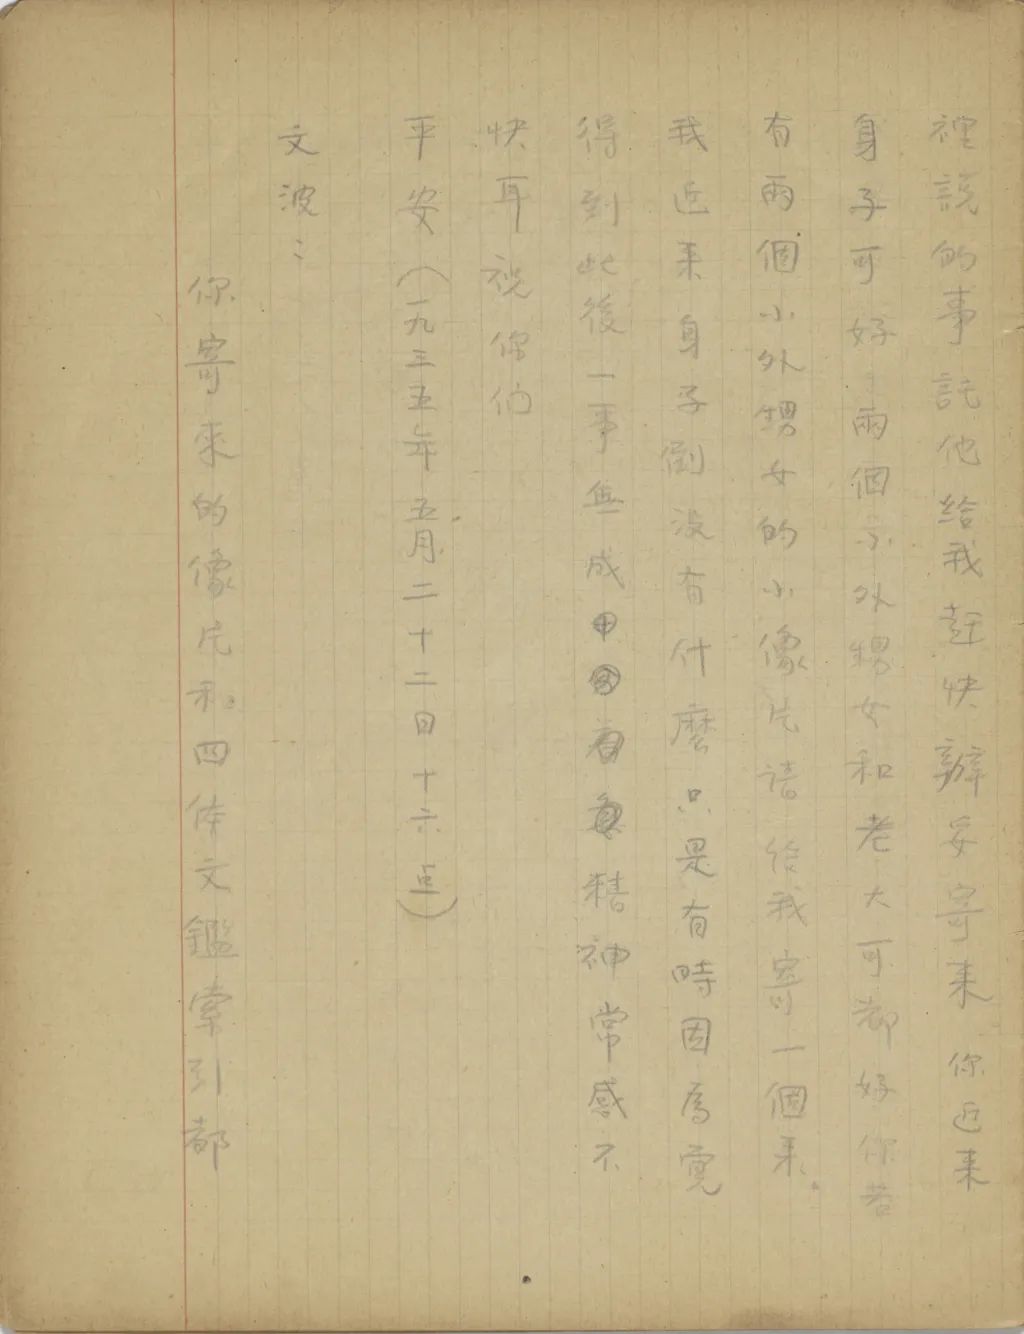 裡説的事託他給我赶快辦妥寄来你近来
身子可好兩個小外甥女和老大可都好你若
有兩個小外甥女的小像片請給我寄一個来
我近来身子倒没有什麽只是有時因為覔
得到此後一事無成精神常感不
快耳祝你们
平安（一九三五年五月二十二日十六点）
文波：
你寄来的像片和四体文鑑索引都